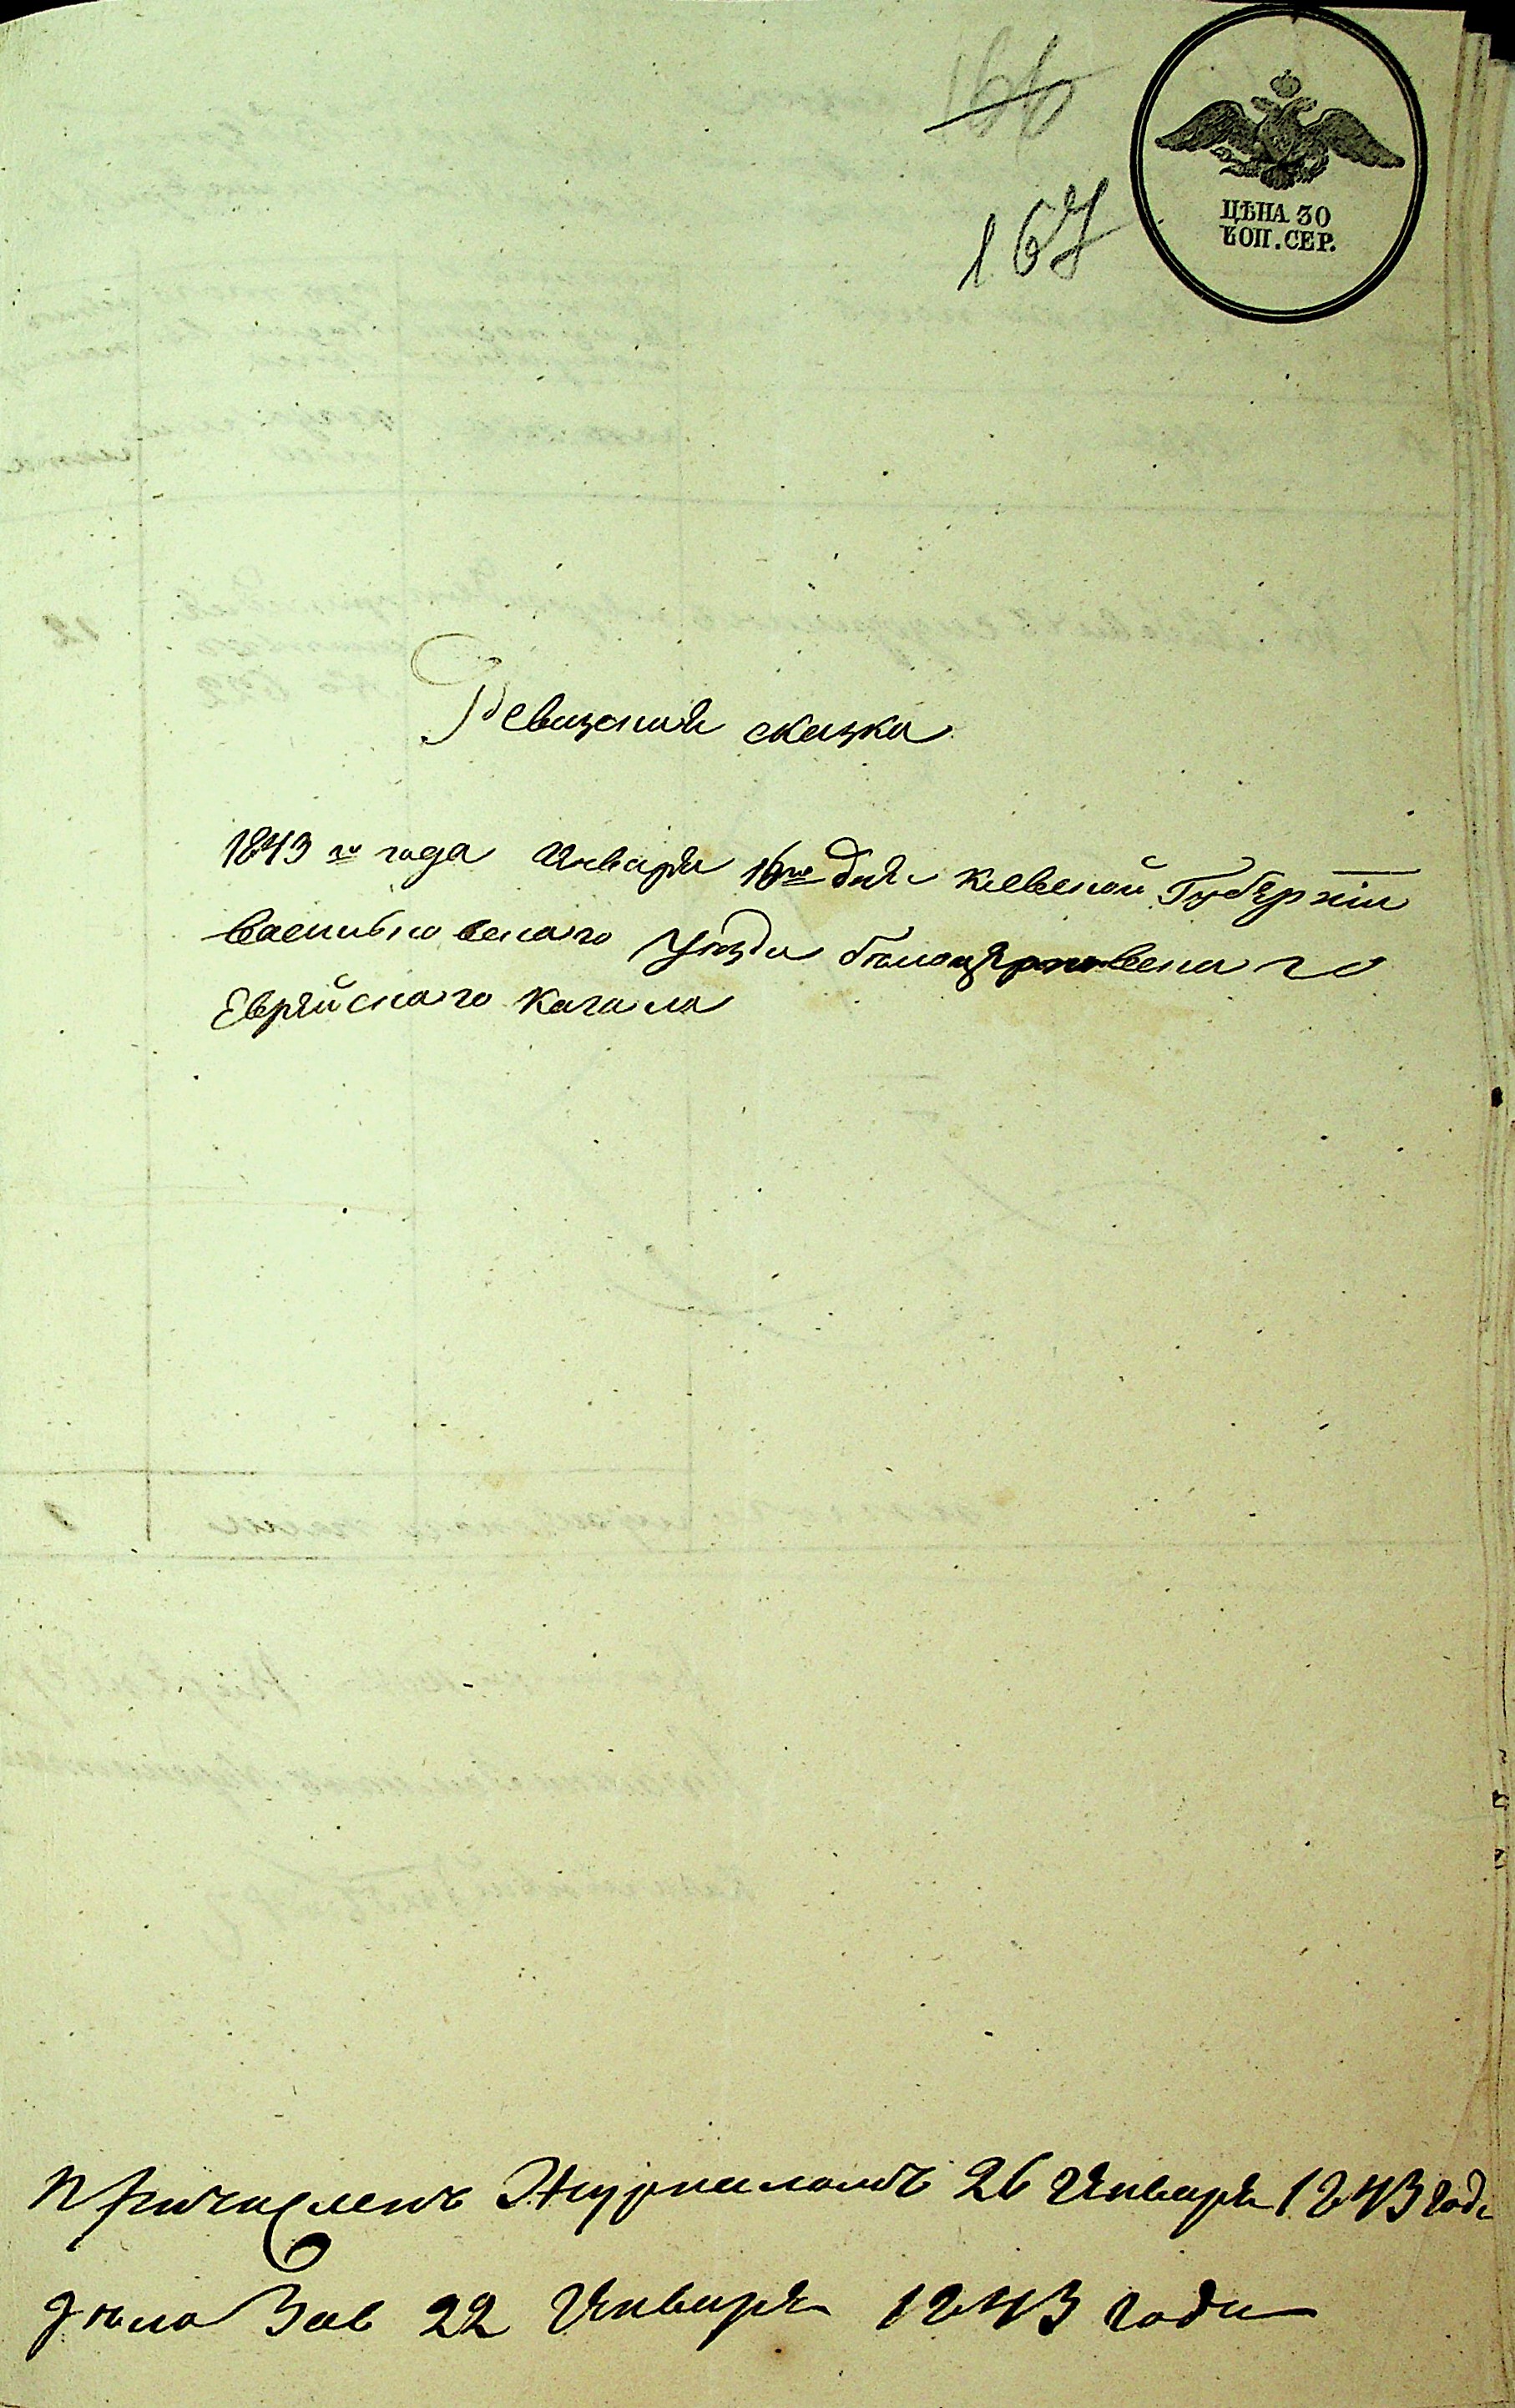 166
167
ЦѢНА 30
КОП. СЕР.
Ревизская сказка
1843 го года Января 16го дня Киевской Губернiи
Васильковскаго Уѣзда Бѣлоцерковскаго
Еврейскаго Кагала
Причисленъ Журналомъ 26 Января 1843 года
дѣло Зав 22 Января 1843 года